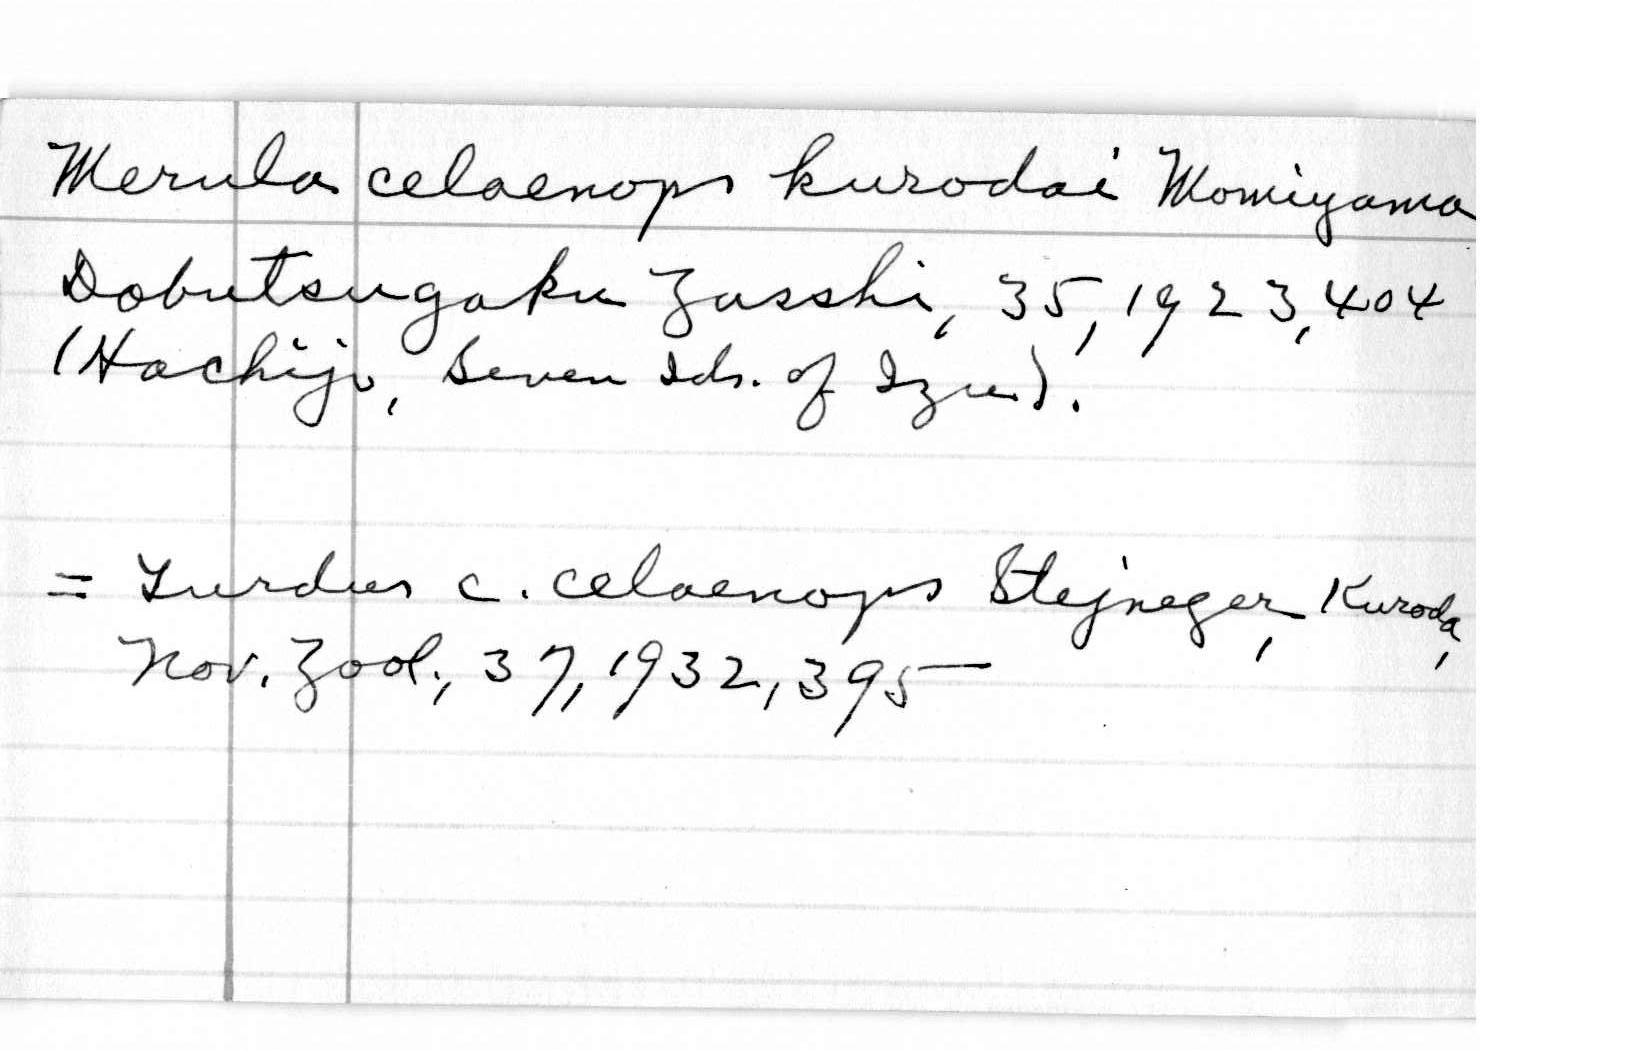 Merula celaenops kurodai Momiyama
Dobutsugaku Zasshi, 35, 1923, 404
(Hachijo, Seven Ids. of Izu).
= Turdus c. celaenops Stejneger, Kuroda,
Nov. Zool., 37, 1932, 395